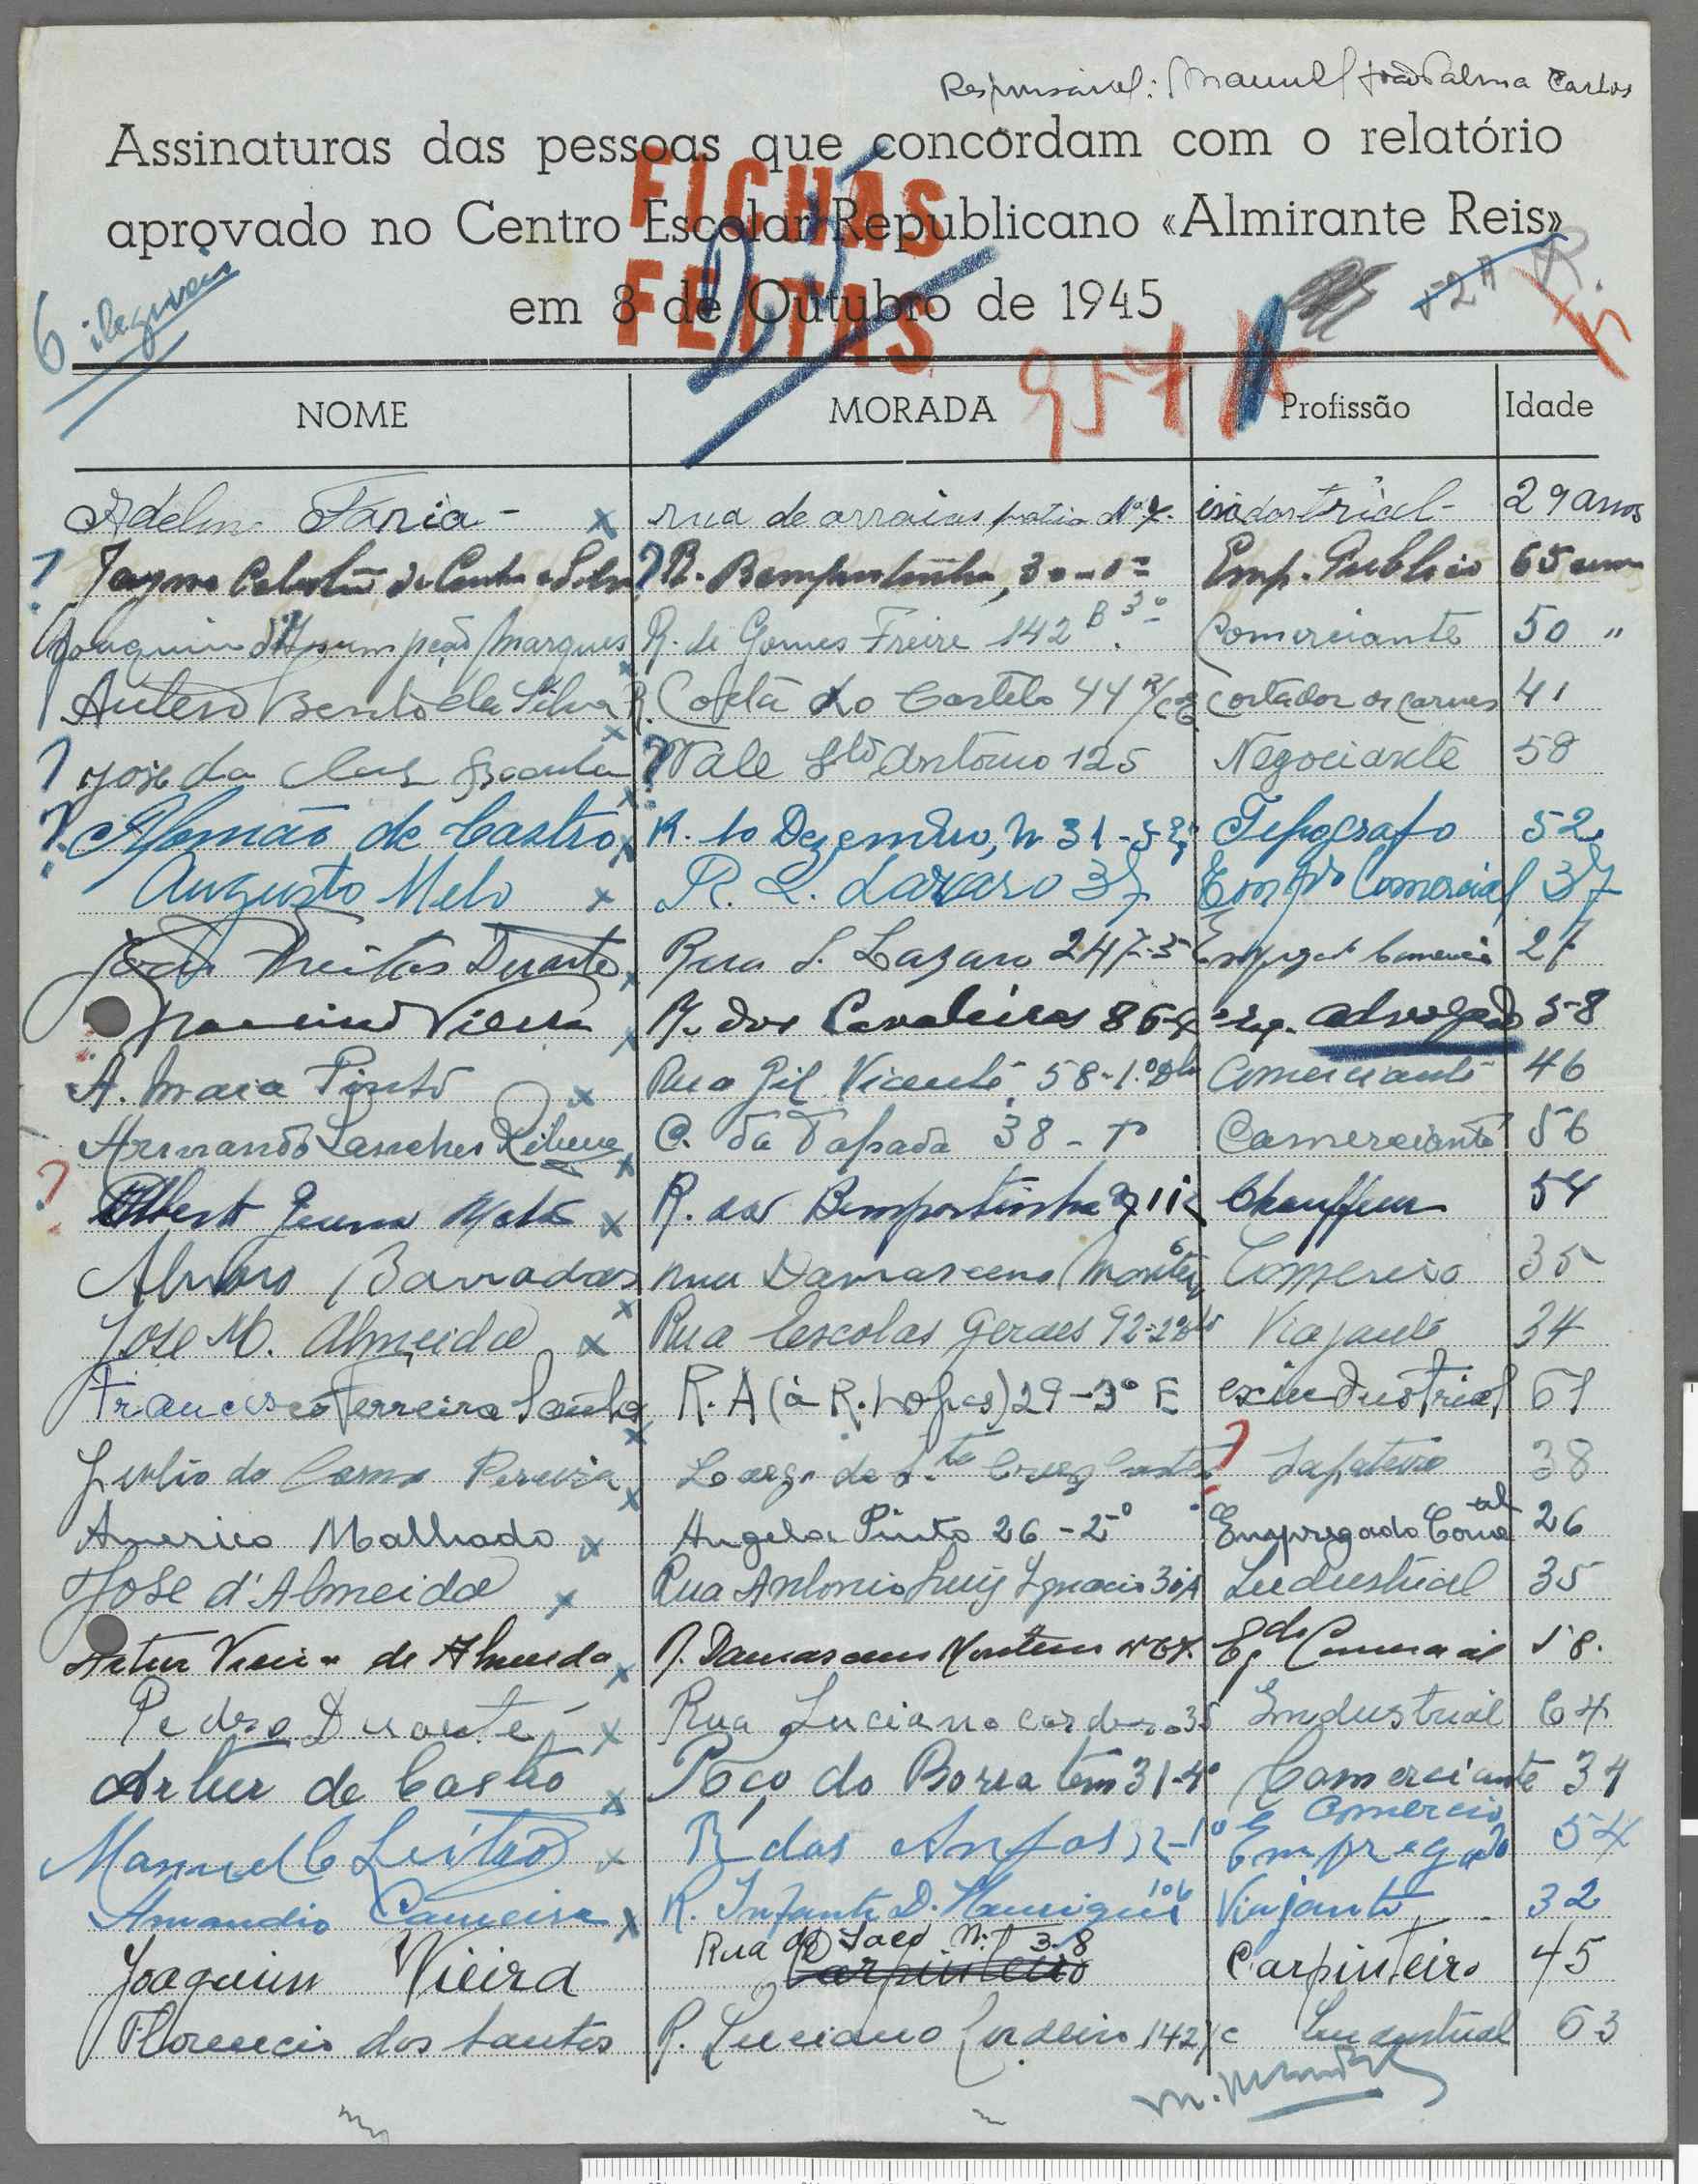 Responsável: Manuel João Palma Carlos
Assinaturas das pessoas que concordam com o relatório
aprovado no Centro Escolar Republicano «Almirante Reis»
em 8 de Outubro de 1945
FICHAS
FEITAS
6 ilegiveis
52A
R.
954
NOME MORADA Profissão Idade
Faria - x rua de arroios patio Nº 7. industrial - 29 anos
? Jayme de Cunha e ? R. Bempostinha, 30-1º Emp. Publico 65 anos
Joaquim d'Assumpção Marques x R. de Gomes Freire 142 B 3º Comerciante 50 "
Antero Bento da Silva x R. Costa do Castelo 44 R/c E Cortador de carnes 41
? José da x ? Vale Stº António 125 Negociante 58
? de Castro x R. 1º Dezembro, Nº 31-3º Tipografo 52
Augusto Melo x R. S. Lazaro 37 Empdo Comercial 37
João Freitas Duarte x Rua S. Lazaro 247-3º Comercio 27
Vieira x R. dos Cavaleiros 86-4 advogado 58
A. Maia Pinto x Rua Gil Vicente 58-1º Dto Comerciante 46
Armando Sanches Ribeiro x C. da Tapada 38 - Comerciante 56
? Mata x R. da Bempostinha Chauffeur 54
Alvaro Barradas x rua Damasceno Monteiro 6 Comercio 35
José M. Almeida x Rua Escolas Geraes 92-2º Dto Viajante 34
Francisco Ferreira x R. A (à R. Lopes) 29-3º E ex industrial 61
Julio do Carmo Pereira x Largo de Sta Cruz Castelo ? Sapateiro 38
Americo Malhado x Angela Pinto 26-2º Empregado Comal 26
José d'Almeida x Rua Antonio Luiz Ignacio 30 A Industrial 35
Artur Vieira de Almeida x R. Damasceno Monteiro Nº Comercial 58.
Pedro Duarte x Rua Luciano cordeiro 35 Industrial 64
Artur de Castro x Poço do Borratem 31-4º Comerciante 34
Manuel C Leitão x R das Anjos 1º E Comercio Empregado 54
Amandio Carneiro x R. Infante D. Henrique 106 Viajante 32
Joaquim Vieira Rua do Saco Nº 38 Carpinteiro Carpinteiro 45
Florencio dos Santos R. Luciano Cordeiro 142 r/c Industrial 63